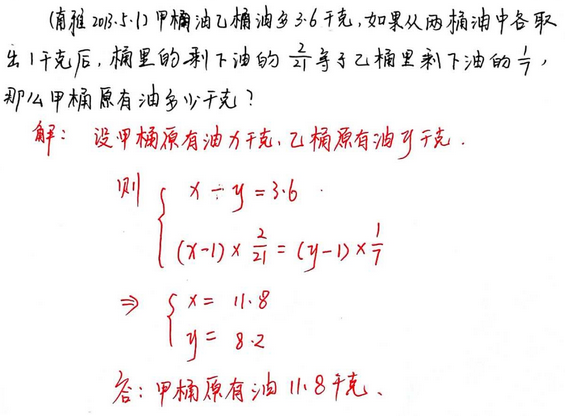 (南雅2013.5.1) 甲桶油乙桶油多3.6千克,如果从两桶油中各取
出1千克后,桶里的剩下油的 2/21 等于乙桶里剩下油的 1/7,
那么甲桶原有油多少千克?
解: 设甲桶原有油x千克,乙桶原有油y千克.
则 { x÷y=3.6
(x-1)×2/21=(y-1)×1/7
⇒ { x= 11.8
y= 8.2
答:甲桶原有油11.8千克、